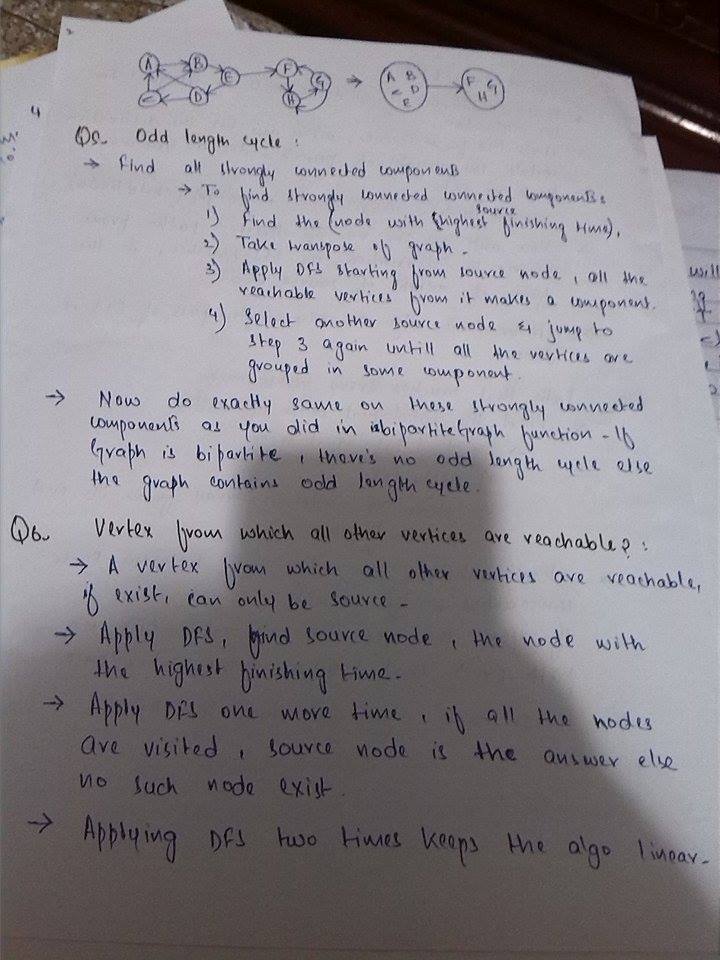 A B E F G
C D H
→ A B C D E → F G H
4
Q5. Odd length cycle :
→ Find all strongly connected components
→ To find strongly connected connected components
1) Find the (node with highest finishing time),
source
2) Take transpose of graph.
3) Apply DFS starting from source node, all the
reachable vertices from it makes a component.
4) Select another source node & jump to
step 3 again untill all the vertices are
grouped in some component.
→ Now do exactly same on these strongly connected
components as you did in isbipartiteGraph function - If
Graph is bipartite, there's no odd length cycle else
the graph contains odd length cycle.
Q6. Vertex from which all other vertices are reachable? :
→ A vertex from which all other vertices are reachable,
if exist, can only be source -
→ Apply DFS, find source node, the node with
the highest finishing time.
→ Apply DFS one more time, if all the nodes
are visited, source node is the answer else
no such node exist.
→ Applying DFS two times keeps the algo linear.
will